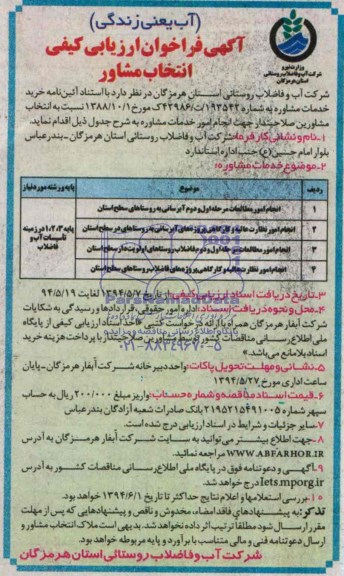 (آب یعنی زندگی)
آگهی فراخوان ارزیابی کیفی
انتخاب مشاور
وزارت نیرو
شرکت آب و فاضلاب روستائی
استان هرمزگان
شرکت آب و فاضلاب روستائی استان هرمزگان در نظر دارد با استناد آئین‌نامه خرید
خدمات مشاوره به شماره ۱۹۳۵۴۲/ت ۴۲۹۸۶ک مورخ ۱۳۸۸/۱۰/۱ نسبت به انتخاب
مشاورین صلاحیتدار جهت انجام امور خدمات مشاوره به شرح جدول ذیل اقدام نماید.
۱-نام و نشانی کارفرما: شرکت آب و فاضلاب روستائی استان هرمزگان - بندرعباس
بلوار امام حسین (ع) جنب اداره استاندارد
۲-موضوع خدمات مشاوره:
ردیف
موضوع
پایه و رشته مورد نیاز
۱
انجام امور مطالعات مرحله اول و دوم آبرسانی به روستاهای سطح استان
۲
انجام امور نظارت عالیه و کارگاهی پروژه‌های آبرسانی به روستاهای در سطح استان
۳
انجام امور مطالعات مرحله اول و دوم فاضلاب روستاهای اولویت‌دار سطح استان
۴
انجام امور نظارت عالیه و کارگاهی پروژه‌های فاضلاب روستاهای سطح استان
پایه ۱،۲،۳ در زمینه
تاسیسات آب و
فاضلاب
۳-تاریخ دریافت اسناد ارزیابی کیفی: از تاریخ ۱۳۹۴/۵/۷ لغایت ۹۴/۵/۱۹
۴-محل و نحوه دریافت اسناد: اداره امور حقوقی، قراردادها و رسیدگی به شکایات
شرکت آبفار هرمزگان همراه با ارائه درخواست کتبی «اخذ اسناد ارزیابی کیفی از پایگاه
ملی اطلاع رسانی مناقصات کشور برای مشاورین صلاحیتدار با پرداخت هزینه خرید
اسناد بلامانع می‌باشد»
ParsNamadData
پایگاه اطلاع رسانی مناقصه و مزایده
۰۲۱-۸۸۳۴۹۶۷۰-۵
۵-نشانی و مهلت تحویل پاکات: واحد دبیرخانه شرکت آبفار هرمزگان - پایان
ساعت اداری مورخ ۱۳۹۴/۵/۲۷
۶-قیمت اسناد مناقصه و شماره حساب: واریز مبلغ ۲۰۰/۰۰۰ ریال به حساب
سپهر شماره ۲۱۹۵۲۱۵۴۹۱۰۰۵ بانک صادرات شعبه آزادگان بندرعباس
۷-سایر جزئیات و شرایط در اسناد ارزیابی درج شده است.
۸-جهت اطلاع بیشتر می‌توانید به سایت شرکت آبفار هرمزگان به آدرس
WWW.ABFARHOR.IR مراجعه نمائید.
۹-آگهی و دعوتنامه فوق در پایگاه ملی اطلاع رسانی مناقصات کشور به آدرس
Iets.mporg.ir درج خواهد شد.
۱۰-بررسی استعلامها و اعلام نتایج حداکثر تا تاریخ ۱۳۹۴/۶/۱ خواهد بود.
تذکر: به پیشنهادهای فاقد امضاء، مخدوش و ناقص و پیشنهادهایی که پس از مهلت
مقرر ارسال شود مطلقا ترتیب اثر داده نخواهد شد. بدیهی است ملاک انتخاب مشاور و
ارسال دعوتنامه فنی و مالی متناسب با برآورد و پایه مربوطه خواهد بود.
شرکت آب و فاضلاب روستائی استان هرمزگان